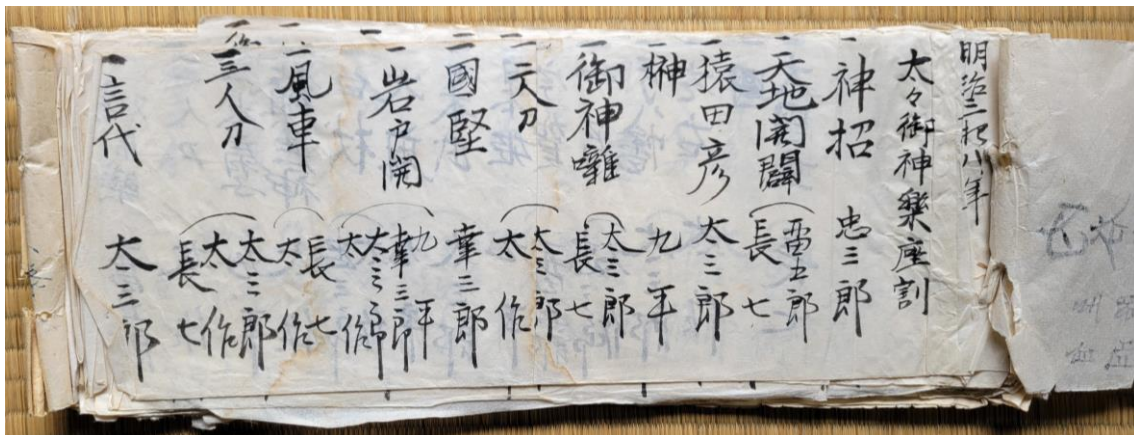 明治二拾八年
太々御神樂座割
一 神招 忠三郎
一 天地開闢 長七
一 猿田彦 太三郎
一 榊 九平
一 御神囃 太三郎 長七
一 二人刀 太三郎 太作
一 國堅 幸三郎
一 岩戸開 九平 幸三郎 太三郎 太作
一 風車 長七 太作
一 三人刀 太三郎 太作 長七
一 言代 太三郎